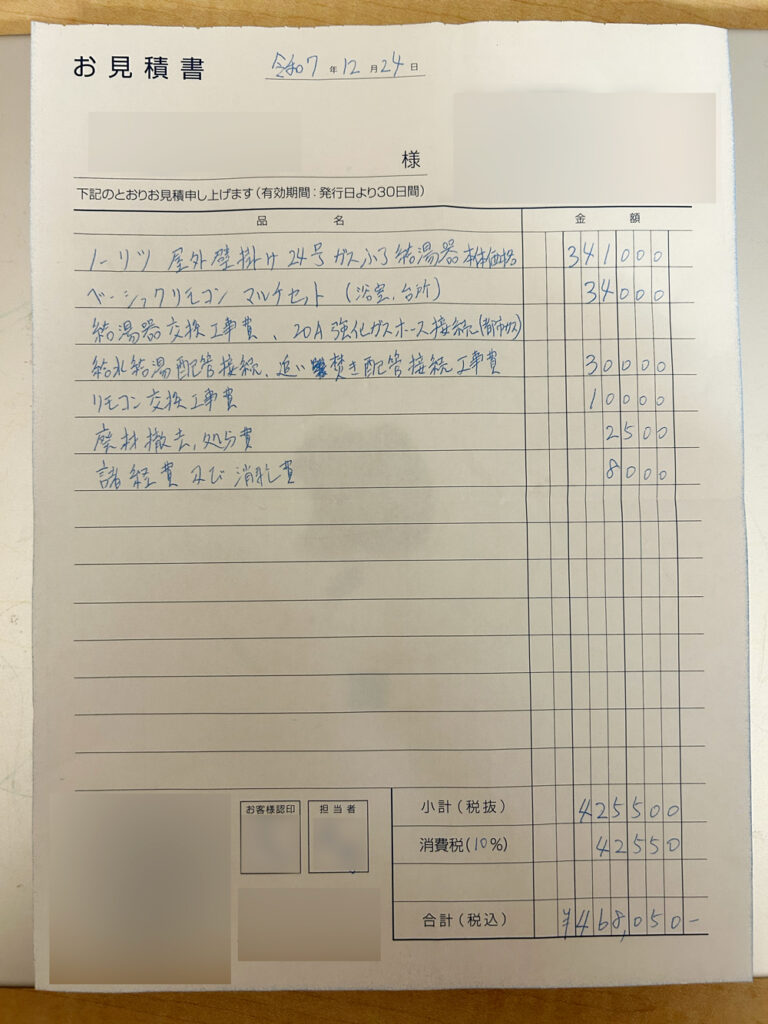 お見積書 令和7年12月24日
様
下記のとおりお見積申し上げます(有効期間:発行日より30日間)
品名 金額
ノーリツ 屋外壁掛け 24号 ガスふろ給湯器 本体価格 341000
ベーシックリモコン マルチセット (浴室、台所) 34000
給湯器交換工事費、20A強化ガスホース接続(都市ガス)
給水給湯配管接続、追い焚き配管接続工事費 30000
リモコン交換工事費 10000
廃材撤去、処分費 2500
諸経費及び消耗費 8000
お客様認印 担当者
小計(税抜) 425500
消費税(10%) 42550
合計(税込) ¥468,050-